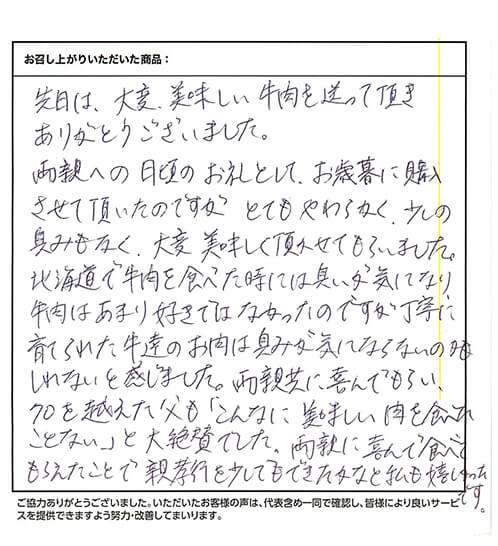 お召し上がりいただいた商品：
先日は、大変、美味しい牛肉を送って頂き
ありがとうございました。
両親への日頃のお礼として、お歳暮に購入
させて頂いたのですが とてもやわらかく、少しの
臭みもなく、大変美味しく頂かせてもらいました。
北海道で牛肉を食べた時には臭いが気になり
牛肉はあまり好きではなかったのですが丁寧に
育てられた牛達のお肉は臭みが気にならないのかも
しれないと感じました。両親共に喜んでもらい、
70を越えた父も「こんなに美味しい肉を食べた
ことない。」と大絶賛でした。両親に喜んで食べて
もらえたことで親孝行を少しでもできたかなと私も嬉しかった
です。
ご協力ありがとうございました。いただいたお客様の声は、代表含め一同で確認し、皆様により良いサービ
スを提供できますよう努力・改善してまいります。